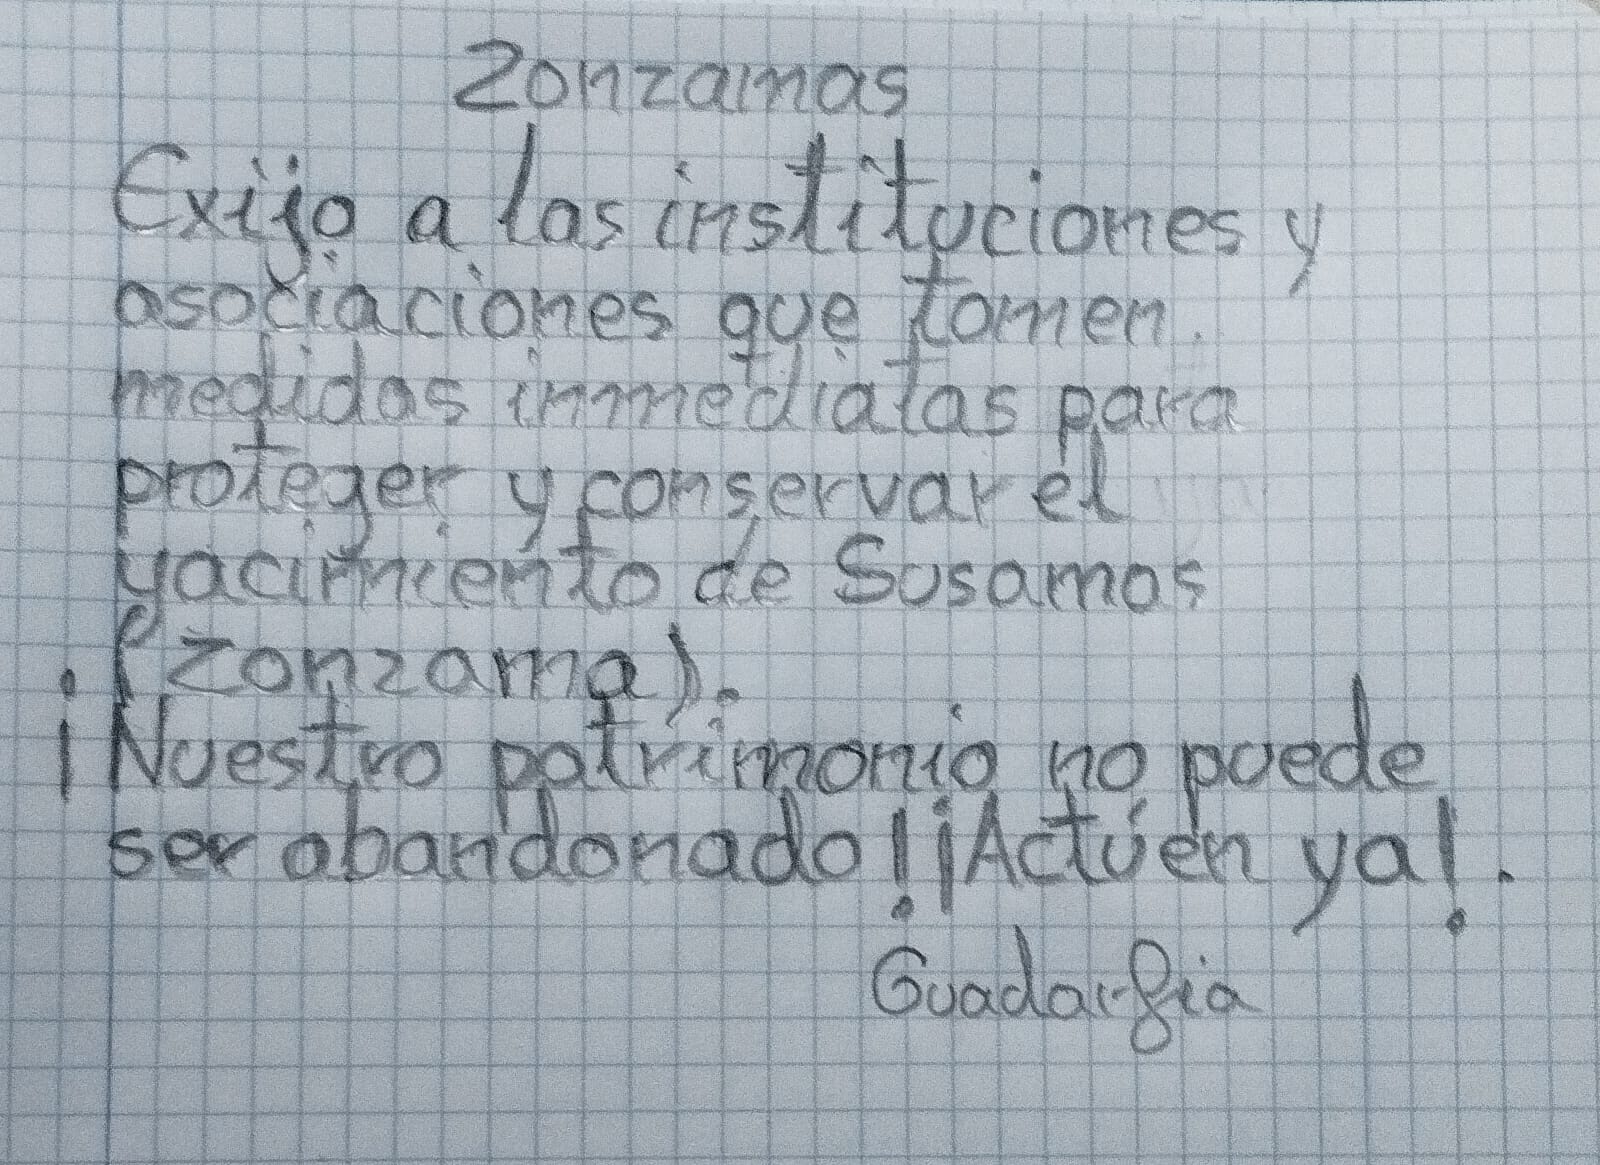 Zonzamas
Exijo a las instituciones y
asociaciones que tomen.
medidas inmediatas para
proteger y conservar el
yacimiento de Susamas
(Zonzama).
¡Nuestro patrimonio no puede
ser abandonado! ¡Actúen ya!.
Guadarfia